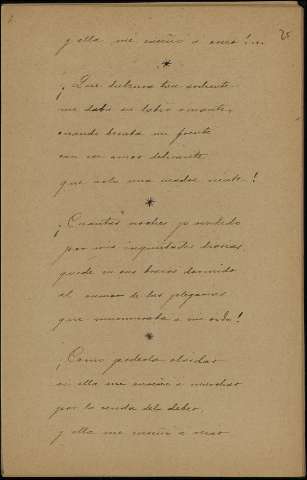 25
y ella me enseñó a orar!...
*
¡Que dulzura tan ardiente
me daba su labio amante,
cuando besaba mi frente
con ese amor delirante
que solo una madre siente!
*
¡Cuantas noches yo rendido
por mis inquietudes diarias
quedé en sus brazos dormido
al rumor de las plegarias
que murmuraba a mi oido!
*
¡Como poderla olvidar
si ella me enseñó a marchar
por la senda del deber,
y ella me enseñó a